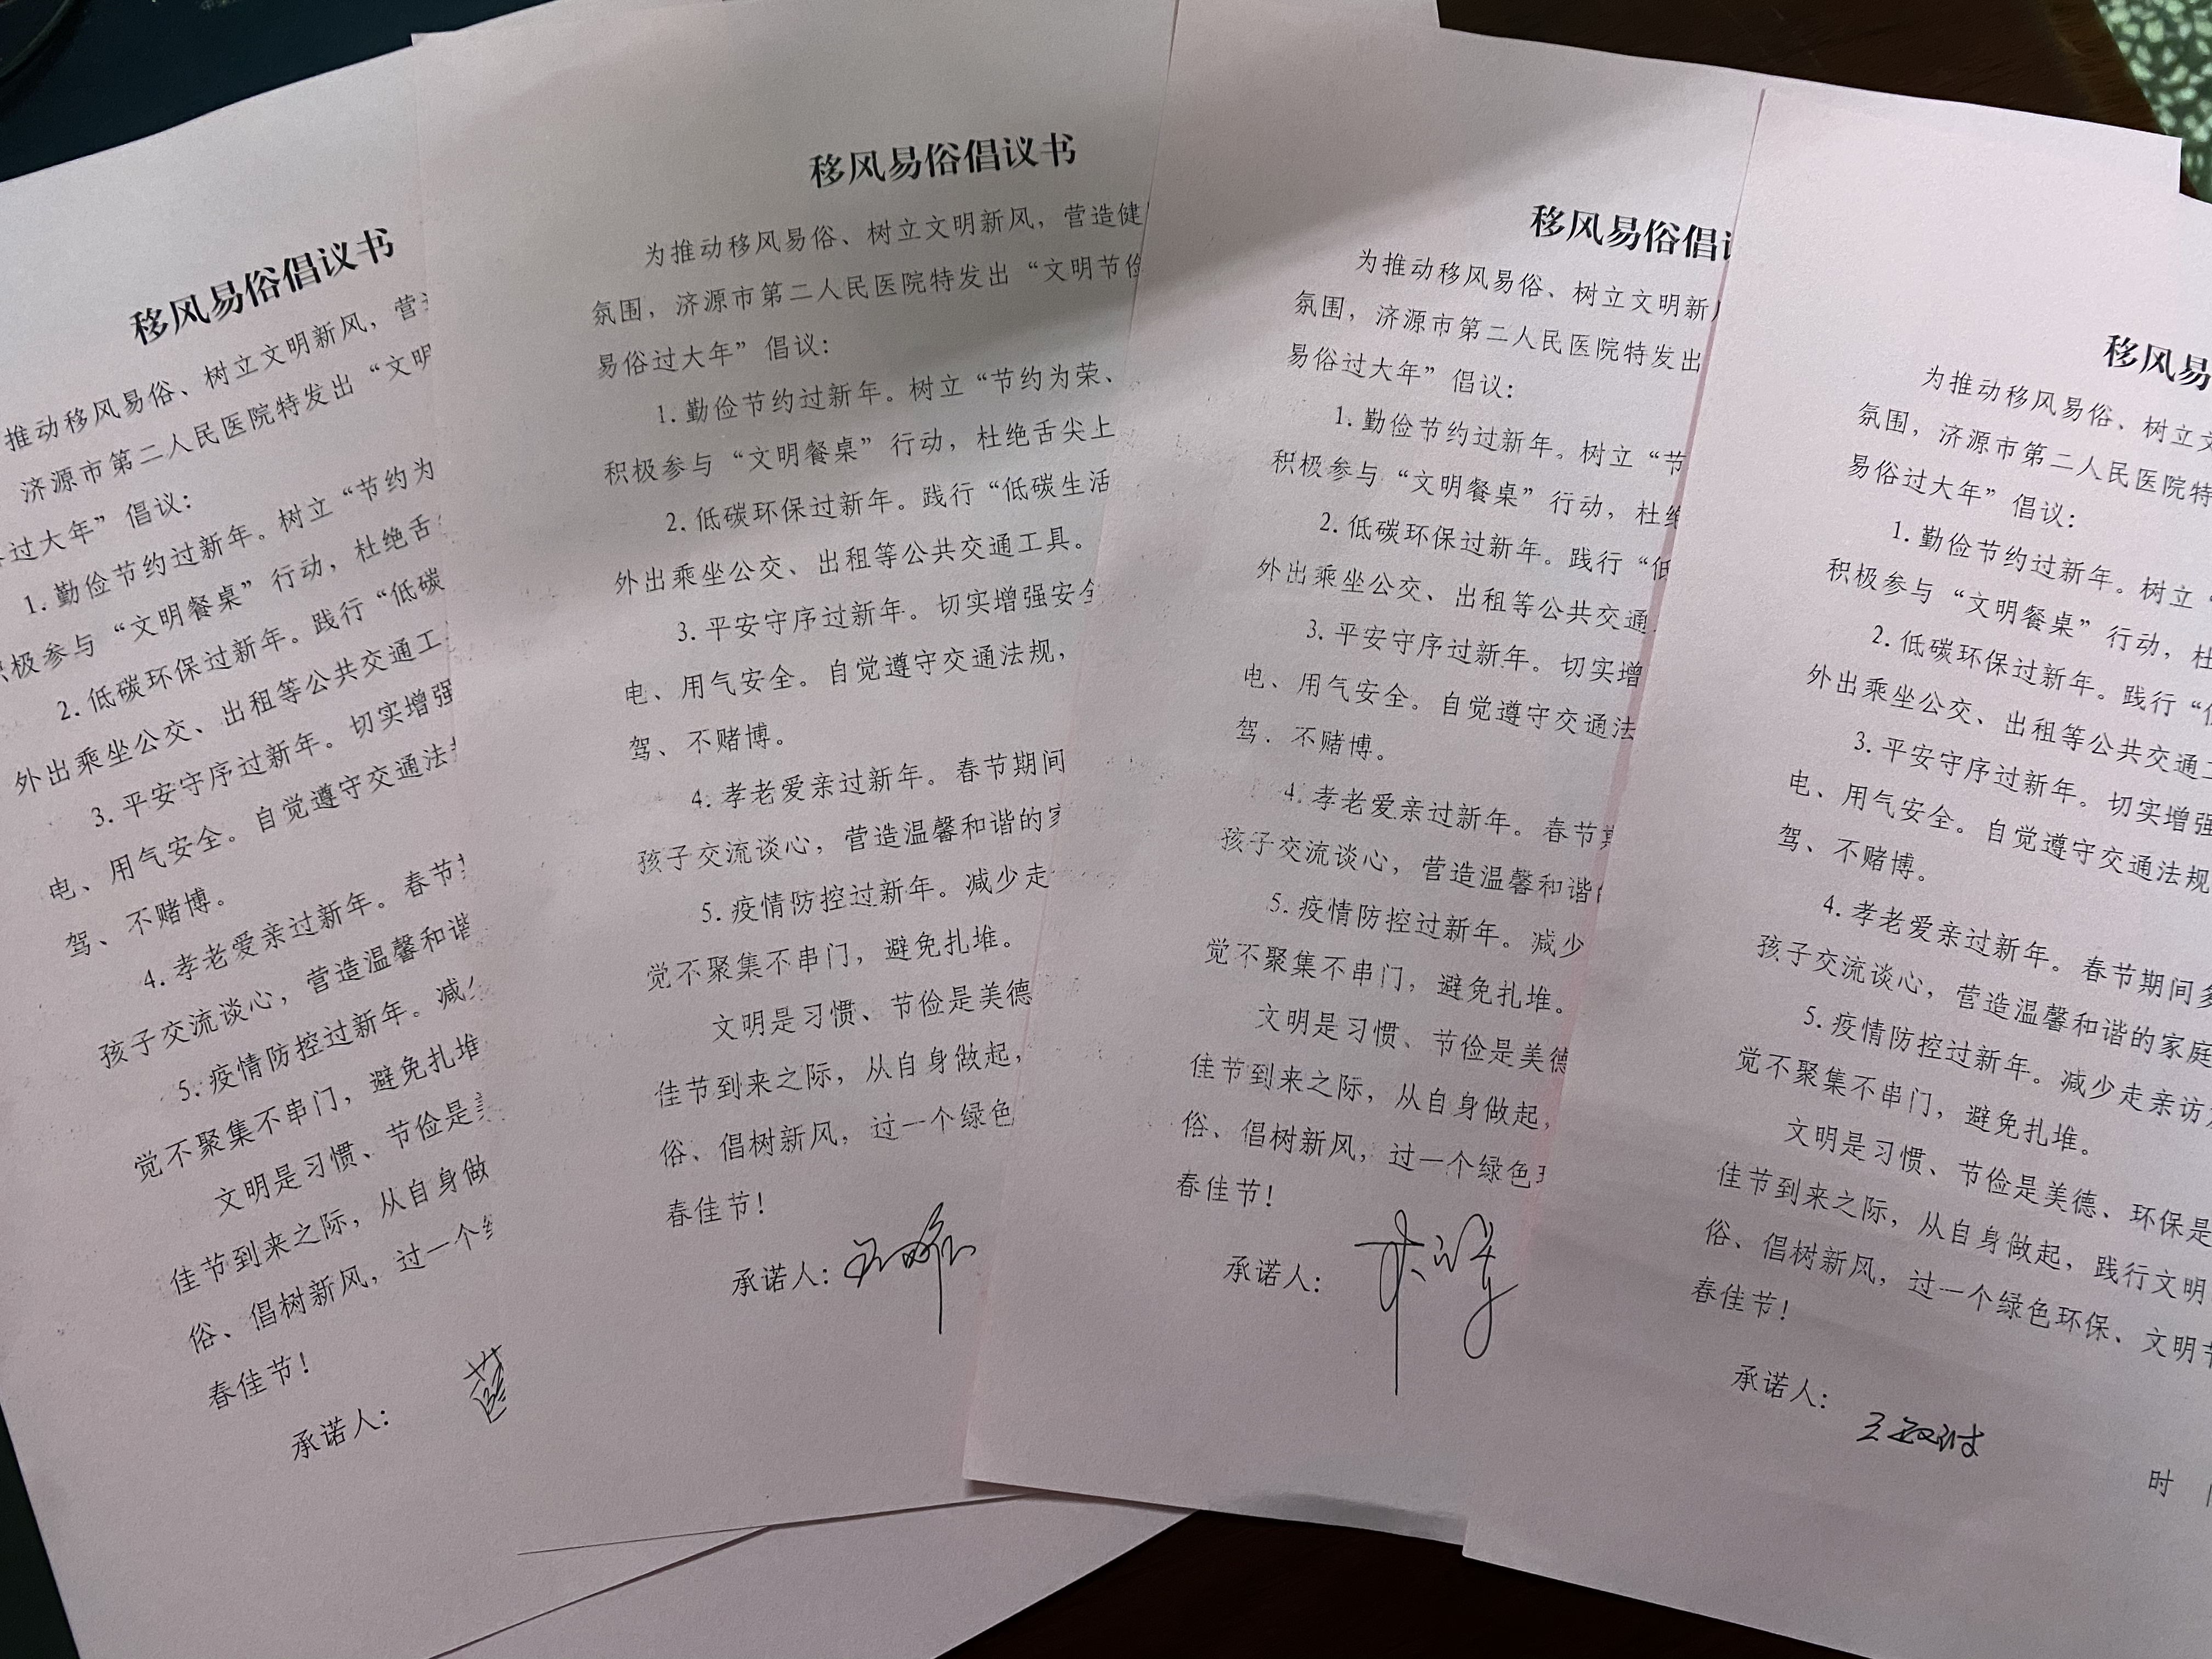 移风易俗倡议书
推动移风易俗、树立文明新风，营
济源市第二人民医院特发出“文明
过大年”倡议：
1. 勤俭节约过新年。树立“节约为
积极参与“文明餐桌”行动，杜绝舌
2. 低碳环保过新年。践行“低碳
外出乘坐公交、出租等公共交通工
3. 平安守序过新年。切实增强
电、用气安全。自觉遵守交通法
驾、不赌博。
4. 孝老爱亲过新年。春节
孩子交流谈心，营造温馨和谐
5. 疫情防控过新年。减
觉不聚集不串门，避免扎堆
文明是习惯、节俭是
佳节到来之际，从自身做
俗、倡树新风，过一个
春佳节！
承诺人：
移风易俗倡议书
为推动移风易俗、树立文明新风，营造健
氛围，济源市第二人民医院特发出“文明节俭
易俗过大年”倡议：
1. 勤俭节约过新年。树立“节约为荣、
积极参与“文明餐桌”行动，杜绝舌尖上
2. 低碳环保过新年。践行“低碳生活
外出乘坐公交、出租等公共交通工具。
3. 平安守序过新年。切实增强安全
电、用气安全。自觉遵守交通法规，
驾、不赌博。
4. 孝老爱亲过新年。春节期间
孩子交流谈心，营造温馨和谐的家
5. 疫情防控过新年。减少走
觉不聚集不串门，避免扎堆。
文明是习惯、节俭是美德
佳节到来之际，从自身做起，
俗、倡树新风，过一个绿色
春佳节！
承诺人：
移风易俗倡议
为推动移风易俗、树立文明新
氛围，济源市第二人民医院特发出
易俗过大年”倡议：
1. 勤俭节约过新年。树立“节
积极参与“文明餐桌”行动，杜绝
2. 低碳环保过新年。践行“低
外出乘坐公交、出租等公共交通
3. 平安守序过新年。切实增
电、用气安全。自觉遵守交通法
驾、不赌博。
4. 孝老爱亲过新年。春节期
孩子交流谈心，营造温馨和谐
5. 疫情防控过新年。减少
觉不聚集不串门，避免扎堆。
文明是习惯、节俭是美德
佳节到来之际，从自身做起，
俗、倡树新风，过一个绿色
春佳节！
承诺人：
移风易
为推动移风易俗、树立文
氛围，济源市第二人民医院特
易俗过大年”倡议：
1. 勤俭节约过新年。树立“
积极参与“文明餐桌”行动，杜
2. 低碳环保过新年。践行“低
外出乘坐公交、出租等公共交通工
3. 平安守序过新年。切实增强
电、用气安全。自觉遵守交通法规
驾、不赌博。
4. 孝老爱亲过新年。春节期间多
孩子交流谈心，营造温馨和谐的家庭
5. 疫情防控过新年。减少走亲访
觉不聚集不串门，避免扎堆。
文明是习惯、节俭是美德、环保是
佳节到来之际，从自身做起，践行文明
俗、倡树新风，过一个绿色环保、文明节
春佳节！
承诺人：
时